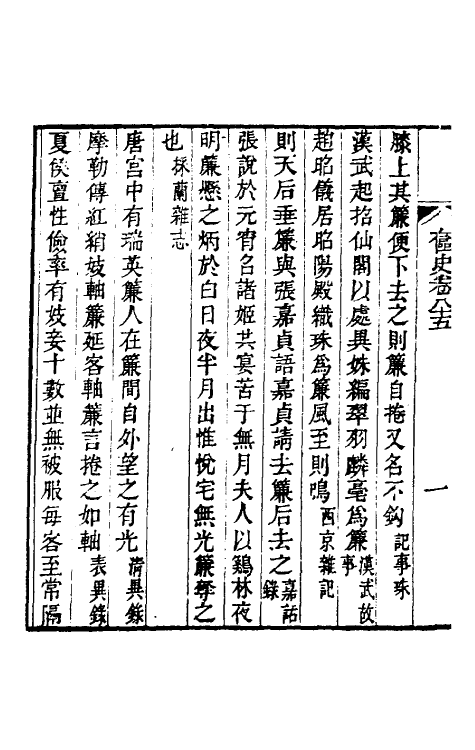 奩史卷八五
一
膝上其簾便下去之則簾自捲又名不鈎記事珠
漢武起招仙閣以處異姝編翠羽麟毫爲簾漢武故事
趙昭儀居昭陽殿織珠爲簾風至則鳴西京雜記
則天后垂簾與張嘉貞語嘉貞請去簾后去之嘉話錄
張說於元宵召諸姬共宴苦于無月夫人以鷄林夜
明簾懸之炳於白日夜半月出惟悅宅無光簾奪之
也採蘭雜志
唐宫中有瑞英簾人在簾間自外望之有光清異錄
摩勒傳紅綃妓軸簾延客軸簾言捲之如軸表異錄
夏侯亶性儉率有妓妾十數並無被服每客至常隔